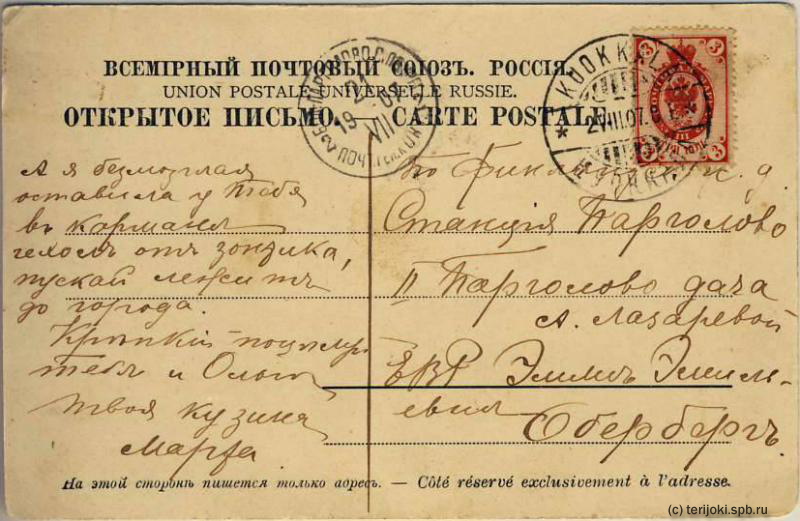 ВСЕМІРНЫЙ ПОЧТОВЫЙ СОЮЗЪ. РОССІЯ.
UNION POSTALE UNIVERSELLE RUSSIE.
ОТКРЫТОЕ ПИСЬМО. — CARTE POSTALE
KUOKKALA
3
3
3
А я безмозглая
оставила у тебя
въ карманѣ
чехолъ отъ зонтика,
пускай лежитъ
до города.
Крѣпкій поцѣлуй
тебѣ и Ольгѣ
твоя кузина
Марѳа
По Финляндск. ж. д.
Станція Парголово
II Парголово дача
А. Лазаревой
ЕВР Эмилъ Эмиль-
евичъ
Обербергъ.
На этой сторонѣ пишется только адресъ. — Côté réservé exclusivement à l'adresse.
(c) terijoki.spb.ru